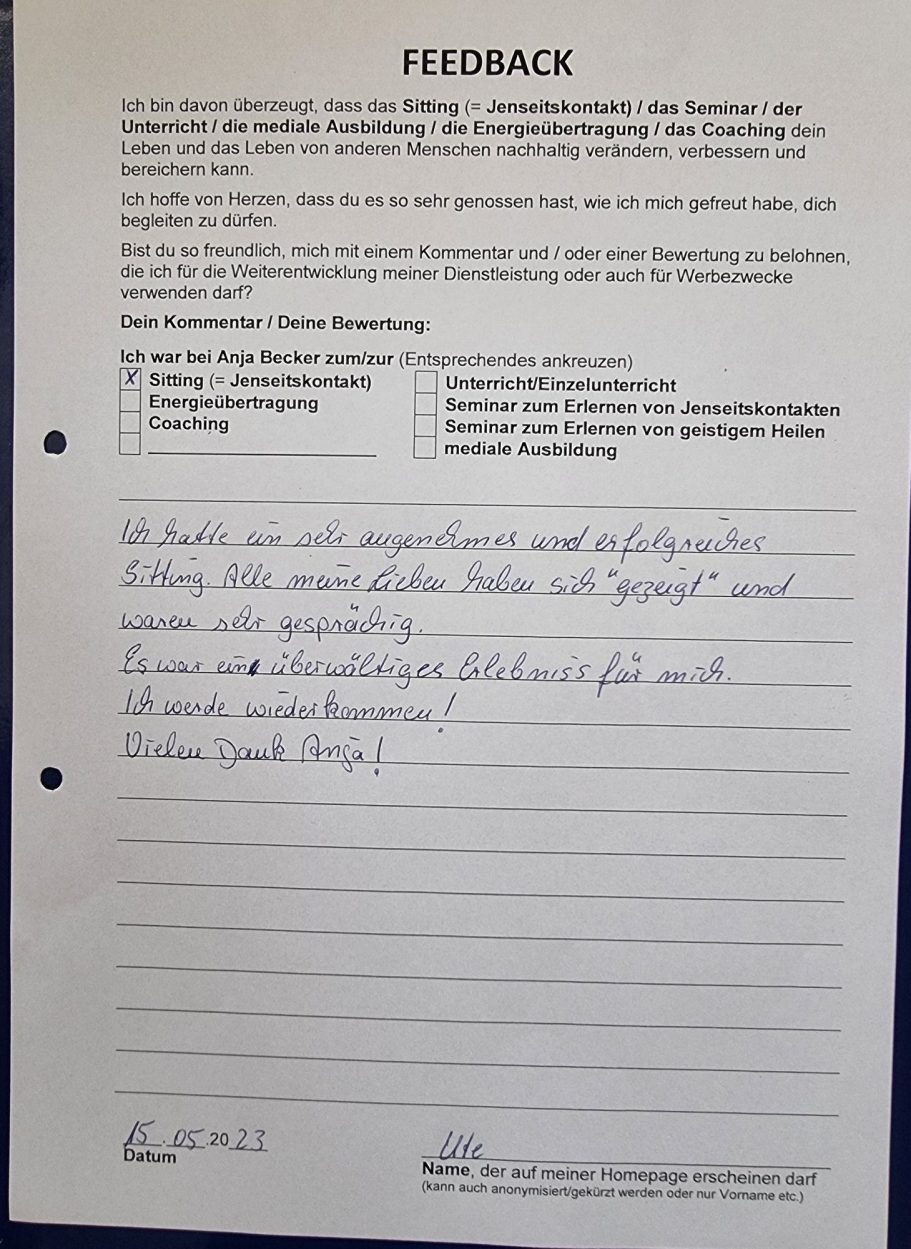 FEEDBACK
Ich bin davon überzeugt, dass das Sitting (= Jenseitskontakt) / das Seminar / der
Unterricht / die mediale Ausbildung / die Energieübertragung / das Coaching dein
Leben und das Leben von anderen Menschen nachhaltig verändern, verbessern und
bereichern kann.
Ich hoffe von Herzen, dass du es so sehr genossen hast, wie ich mich gefreut habe, dich
begleiten zu dürfen.
Bist du so freundlich, mich mit einem Kommentar und / oder einer Bewertung zu belohnen,
die ich für die Weiterentwicklung meiner Dienstleistung oder auch für Werbezwecke
verwenden darf?
Dein Kommentar / Deine Bewertung:
Ich war bei Anja Becker zum/zur (Entsprechendes ankreuzen)
X Sitting (= Jenseitskontakt)
Energieübertragung
Coaching
Unterricht/Einzelunterricht
Seminar zum Erlernen von Jenseitskontakten
Seminar zum Erlernen von geistigem Heilen
mediale Ausbildung
Ich hatte ein sehr angenehmes und erfolgreiches
Sitting. Alle meine Lieben haben sich "gezeigt" und
waren sehr gesprächig.
Es war ein überwältiges Erlebniss für mich.
Ich werde wiederkommen!
Vielen Dank Anja!
15.05.2023
Datum
Ute
Name, der auf meiner Homepage erscheinen darf
(kann auch anonymisiert/gekürzt werden oder nur Vorname etc.)